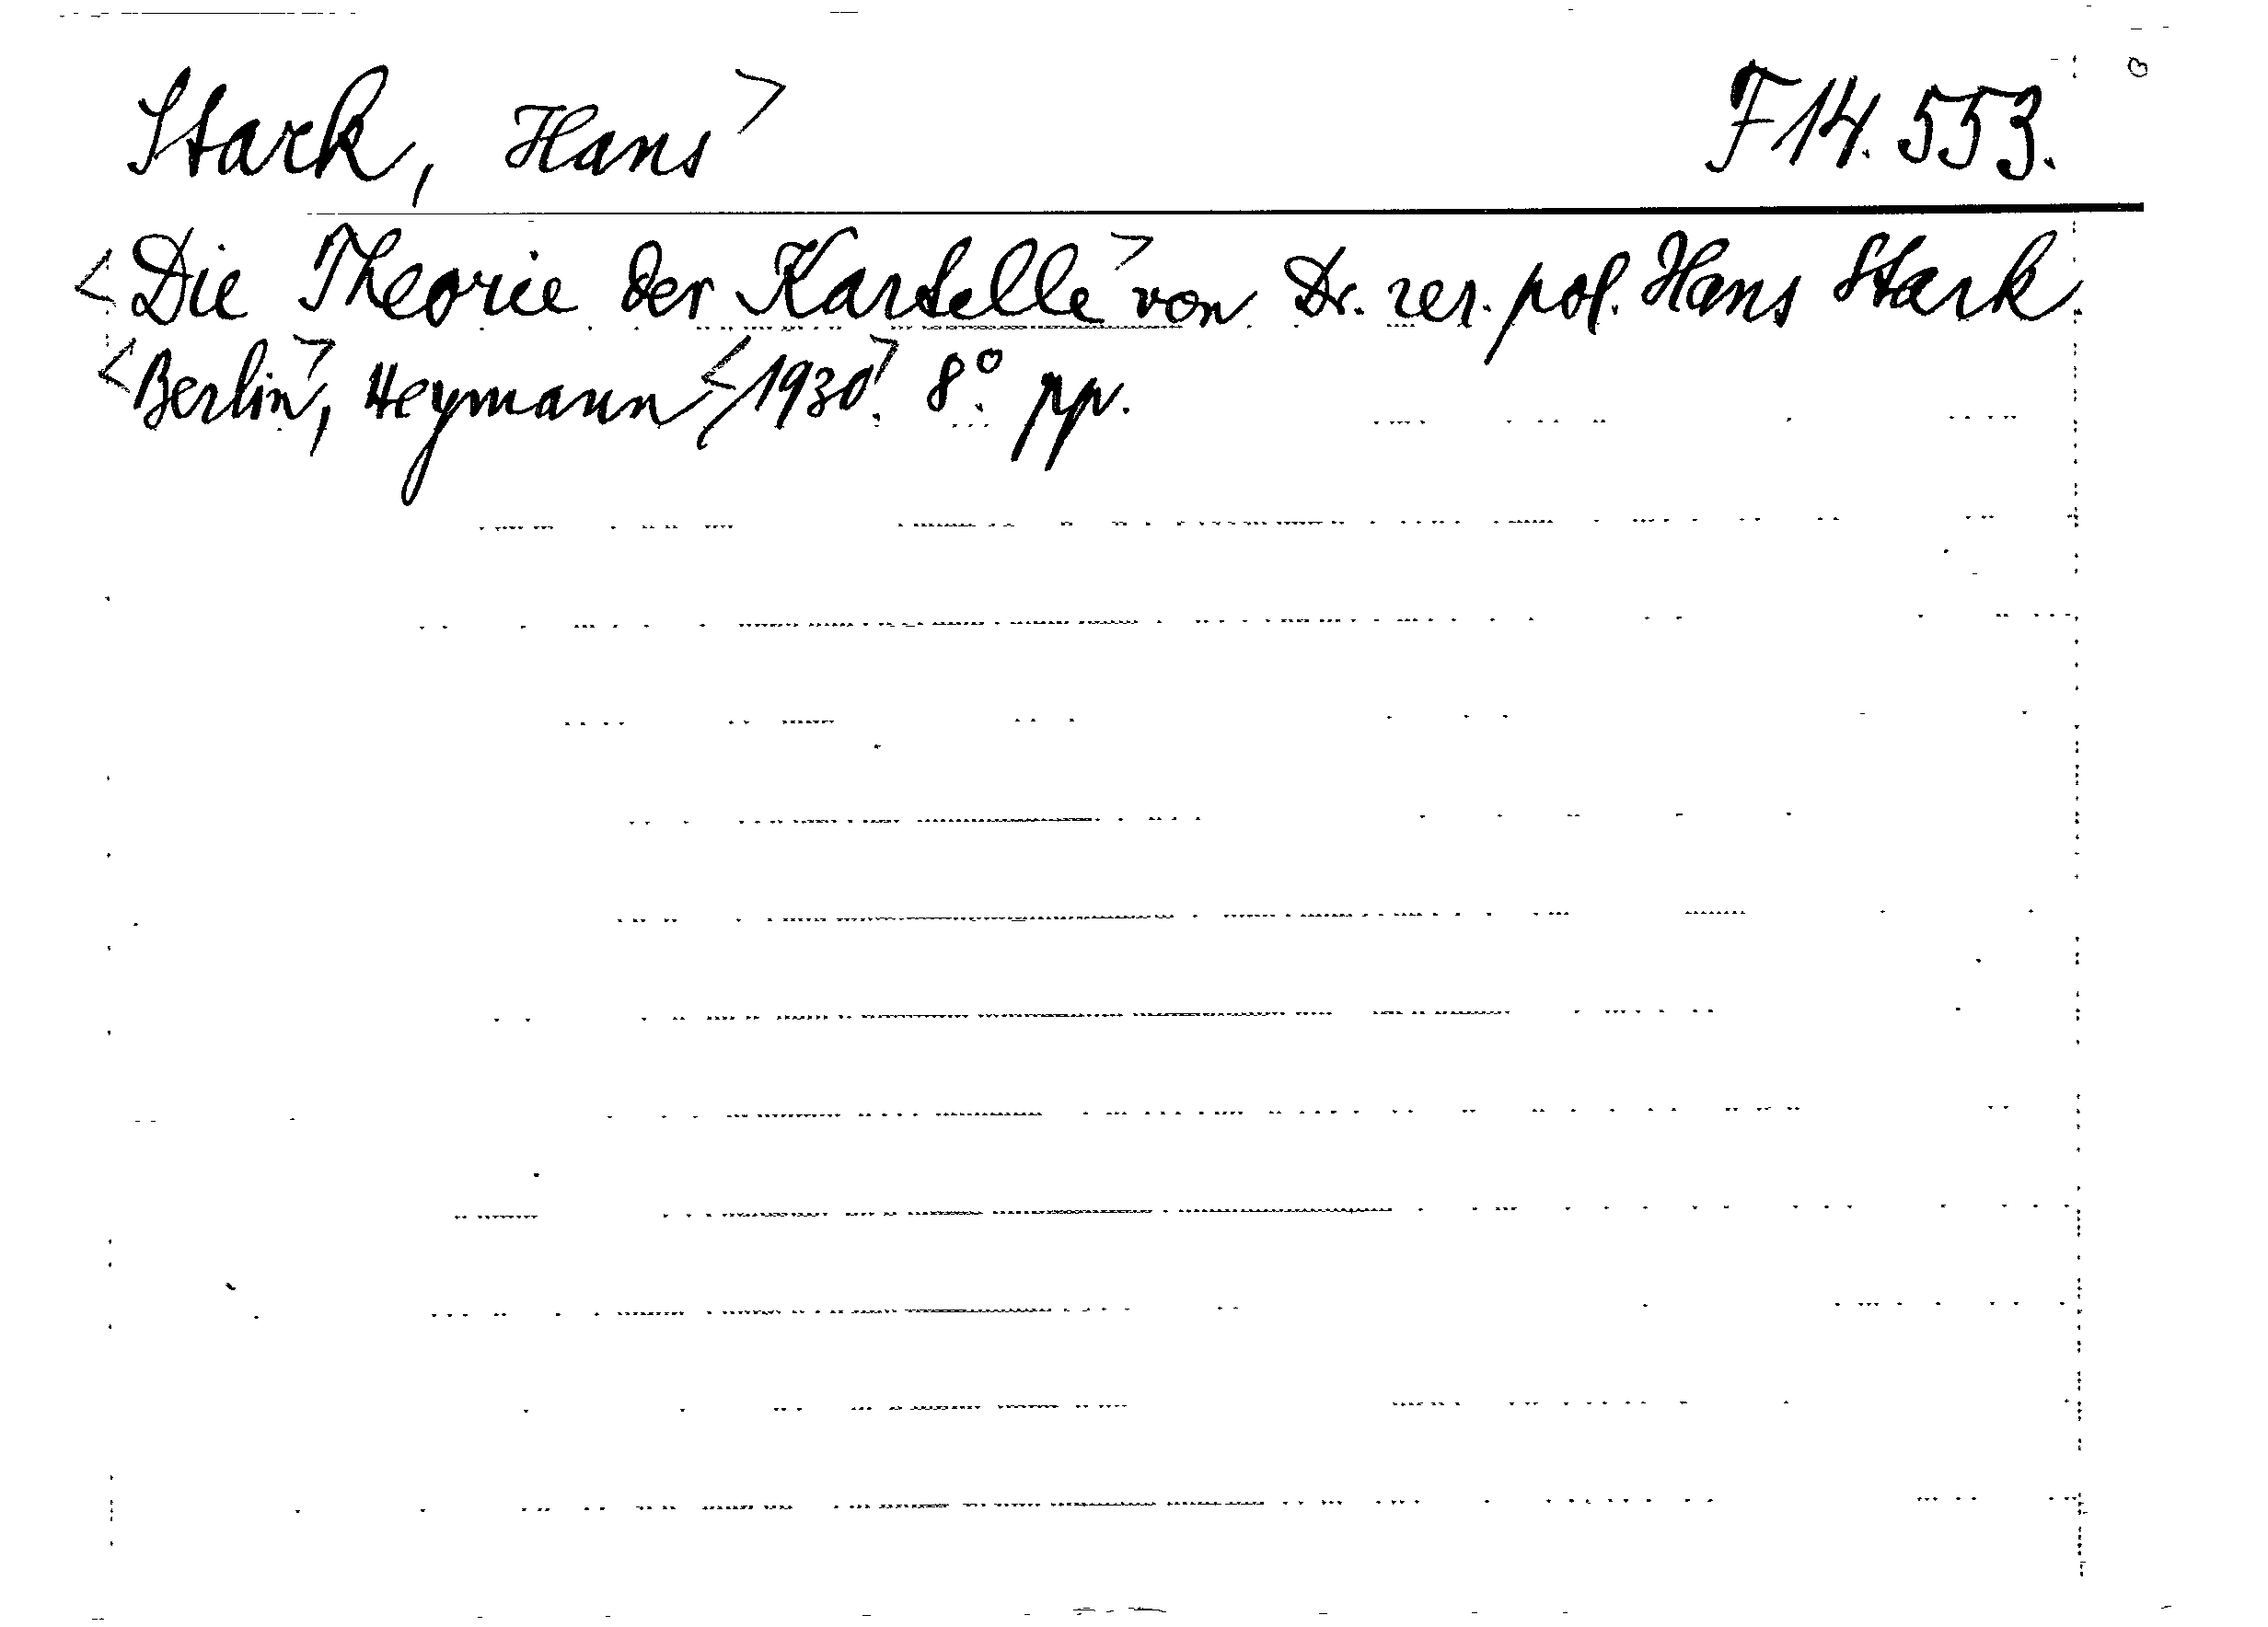 Stark, Hans> F 14.553.
<Die Theorie der Kartelle> von Dr. rer. pol. Hans Stark.
<Berlin>, Heymann <, 1930>. 8° pp.